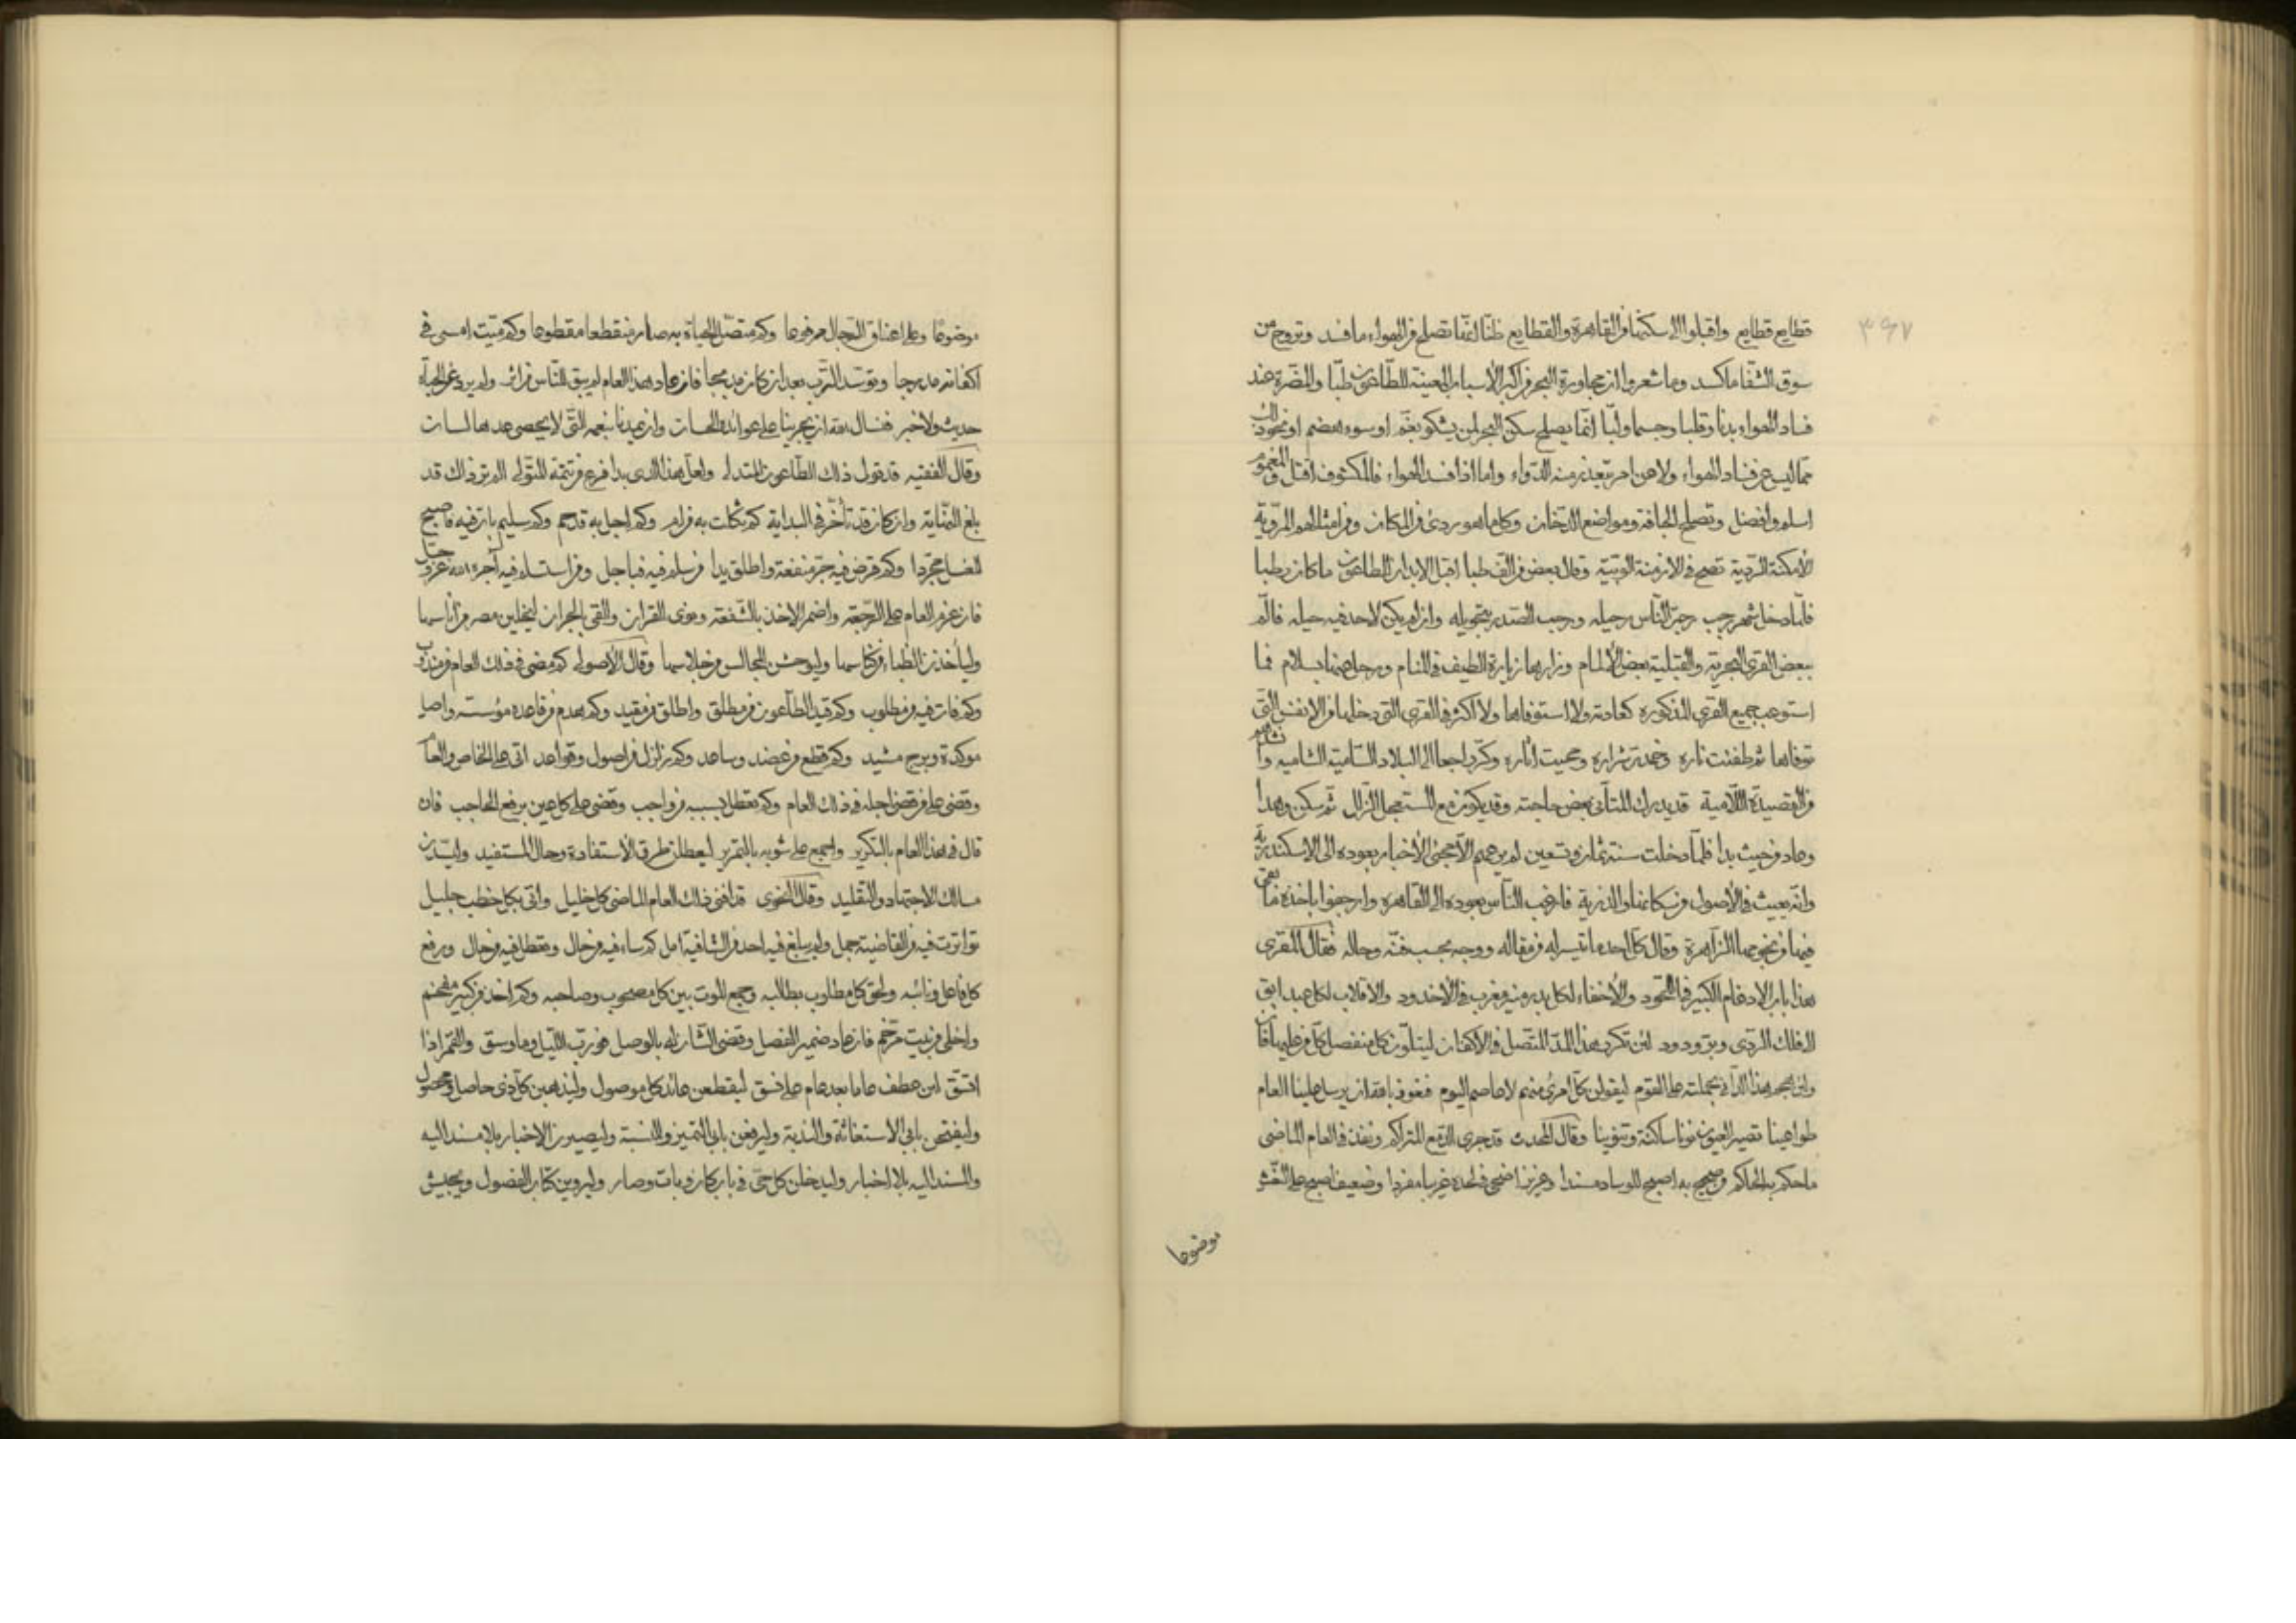 ٣٩٧
قطايع قطايع واقبلوا الى سكنها من القاهرة والقطايع ظنا انها تصلح من الهواء ما فسد وتروج من
سوق الشفا ما كسد وما شعروا ان مجاورة البحر من اكبر الأسباب المعينة للطاعون طبا والمضرة عند
فساد الهواء بدنا وقلبا وجسما ولبا انما يصلح سكن البحر لمن يشكو بغم او سوء هضم او نحو ذلك
مما ليس عن فساد الهواء ولا عن امر يتعذر منه الدواء واما اذا فسد الهواء فالمكشوف اقتل والمغموم
اسلم وافضل وتصلح الجافة ومواضع الدخان وكل ما هو ردئ من المكان ومن امثالهم المروية
الأمكنة الردية تصح في الازمنة الوبية وقال بعض من الف طبا اقبل الابدان للطاعون ما كان رطبا
فلما دخل شهر رجب رجز الناس رحيله ورحب الصدر بتحويله وان لم يكن لاحد فيه حيله فالم
ببعض القرى البحرية والقبلية بعض الالمام وزارها زيارة الطيف في المنام ورحل عنها بسلام فما
استوعب جميع القرى المذكوره كعادته ولا استوفاها ولا اكثر في القرى التي دخلها من الانفس التي
توفاها ثم طفئت ناره وخمدت شراره ومحيت اثاره وكر راجعا الى البلاد الشامية وا
من القصيدة اللامية قد يدرك المتأنى بعض حاجته وقد يكون مع المستعجل الزلل ثم سكن وهدا
وعاد من حيث بدا فلما دخلت سنة ثمان وتسعين لم يرعهم الا مجئ الأخبار بعوده الى الاسكندرية
وانه يعيث في الأصول من سكانها والذرية فارعب الناس بعوده الى القاهره وارجفوا باخذه ما بقى
فيها من نجومها الزاهرة وقال كل احد ما تيسر له من مقاله ووجه بحسب فنه وحاله فقال المقرى
هذا باب الادغام الكبير في اللحود والأخفاء لكل بدر منير مغرب في الأخدود والاقلاب لكل عبد ابق
الفلك الردى وبز ودود لئن تكرر هذا المد المتصل في الاكفان ليتلون كل منفصل كل من عليها فان
ولئن هجم هذا الداء بجملته على القوم ليقولن كل امرئ منهم لا عاصم اليوم فنعوذ بالله ان يرسل علينا العام
طواعينا تصير العيون نونا ساكنة وتنوينا وقال المحدث قد جرى الدمع المتراكم ونفذ في العام الماضى
ما حكم به الحاكم من صحيح به اصبح للوساد مسندا وعزيز اضحى في لحده غريبا مفردا وضعيف اصبح على النعش
موضوعا
موضوعا وعلى اعناق الرجال مرفوعا وكم متصل الحياة به صار منقطعا مقطوعا وكم ميت امسى في
اكفانه مدرجا وتوسد الترب بعد ان كان مدبجا فان عاد هذا العام لم يبق للناس من اثر ولم يرو عن الحياة
حديث ولا خبر فنسال الله ان يجرينا على عوائده الحسان وان يمدنا بنعمه التي لا يحصى عدها لسان
وقال الفقيه قد تول ذلك الطاعون المتدلى ولعل هذا الذى بدا فرع من تتمة المتولى الم تر ذلك قد
بلغ النهاية وان كان قد تأخر في البداية كم نكات به من ام وكم اجل به قد حم وكم سليم بات فيه فاصبح
للغسل مجردا وكم قرض فيه جر منفعة واطلق يدا من سلم فيه فباجل ومن استسلم فيه آجره الله عز وجل
فان عزم العام على الرجعة واضمر الاخذ بالشفعة ونوى القران والقى الجران ليخلين مصر من أناسها
وليأخذن الظباء من كناسها وليوحشن المجالس من جلاسها وقال الأصولى كم مضى في ذلك العام من مندوب
وكم فات فيه من مطلوب وكم قيد الطاعون من مطلق واطلق من مقيد وكم هدم من قاعده مؤسسه واصل
موكدة وبرج مشيد وكم قطع من عضد وساعد وكم زلزل من اصول وقواعد اتى على الخاص والعام
وقضى على من قضى اجله في ذلك العام وكم تعطل بسببه من واجب وقضى على كل عين برفع الحاجب فان
قال في هذا العام بالتكرير واجمع على شوبه بالتمرير ليعطلن طرق الأستفادة وحال المستفيد وليسدن
مسالك الاجتهاد والتقليد وقال النحوى قد افنى ذلك العام الماضى كل خليل واتى بكل خطب جليل
تواترت فيه من القاضية جمل ولم يبلغ فيه احد من الشافية امل كم ساء فيه من حال وتعطل فيه من حال ورفع
كل فاعل ونائبه ولحق كل مطلوب بطالبه وجمع الموت بين كل مصحوب وصاحبه وكم اخذ من كبير مفخم
واخلى من بيت مرخم فان عاد ضمير الفصل وقضى الشان له بالوصل فورب الليل وما وسق والقمر اذا
اتسق لئن عطف عاما بعد عام على نسق ليقطعن عائد كل موصول وليذهبن كل ذى حاصل ومحصول
وليفتحن بابى الاستغاثة والندبة وليرفعن بابى التمييز والنسبة وليصيرن الاخبار بلا مسند اليه
والمسند اليه بلا اخبار وليدخلن كل حى في باب كان وبات وصار وليروين كتاب الفصول ويجيش